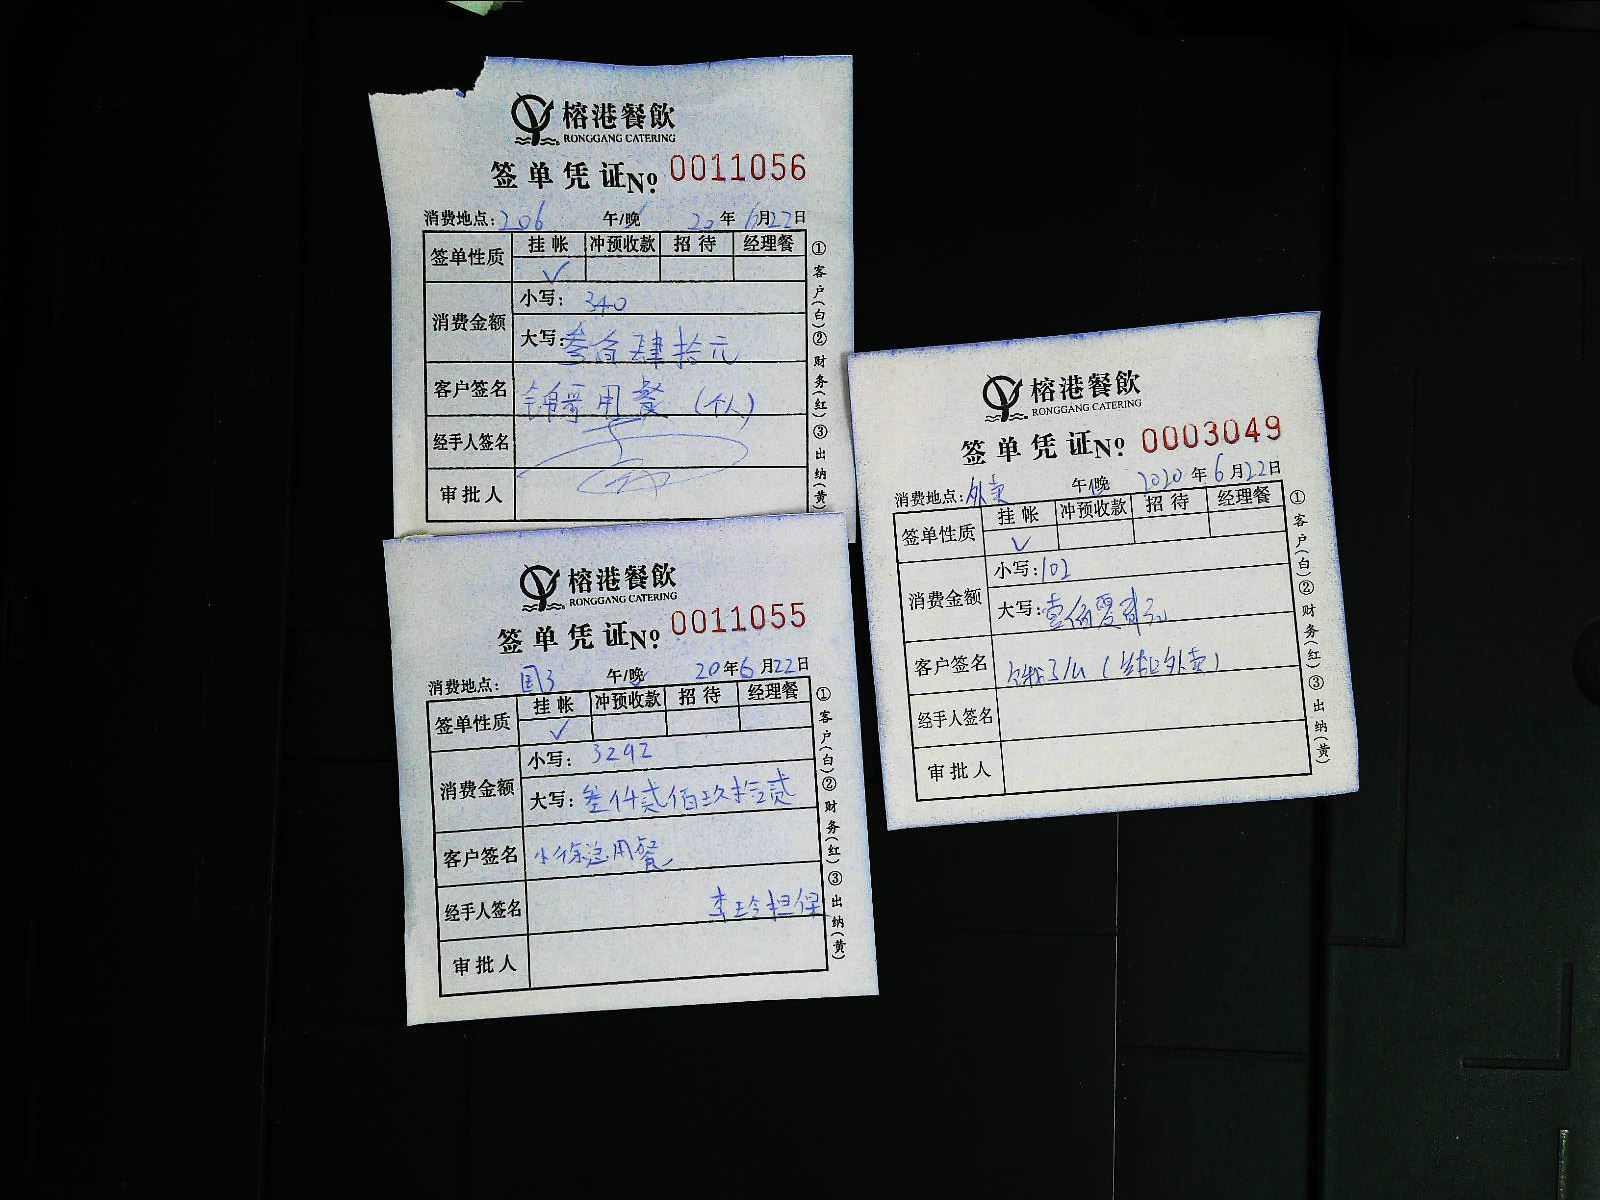 榕港餐飲
RONGGANG CATERING
签单凭证№ 0011056
消费地点：206 午/晚 20年6月22日
签单性质 挂帐 冲预收款 招待 经理餐
✓
消费金额 小写：340
大写：叁佰肆拾元
客户签名 锦哥用餐（个人）
经手人签名
审批人
①客户（白）②财务（红）③出纳（黄）
榕港餐飲
RONGGANG CATERING
签单凭证№ 0011055
消费地点：国3 午/晚 20年6月22日
签单性质 挂帐 冲预收款 招待 经理餐
✓
消费金额 小写：3292
大写：叁仟贰佰玖拾贰
客户签名 小徐总用餐
经手人签名 李玲担保
审批人
①客户（白）②财务（红）③出纳（黄）
榕港餐飲
RONGGANG CATERING
签单凭证№ 0003049
消费地点：外卖 午/晚 2020年6月22日
签单性质 挂帐 冲预收款 招待 经理餐
✓
消费金额 小写：102
大写：壹佰零贰元
客户签名 饿了么（外卖）
经手人签名
审批人
①客户（白）②财务（红）③出纳（黄）